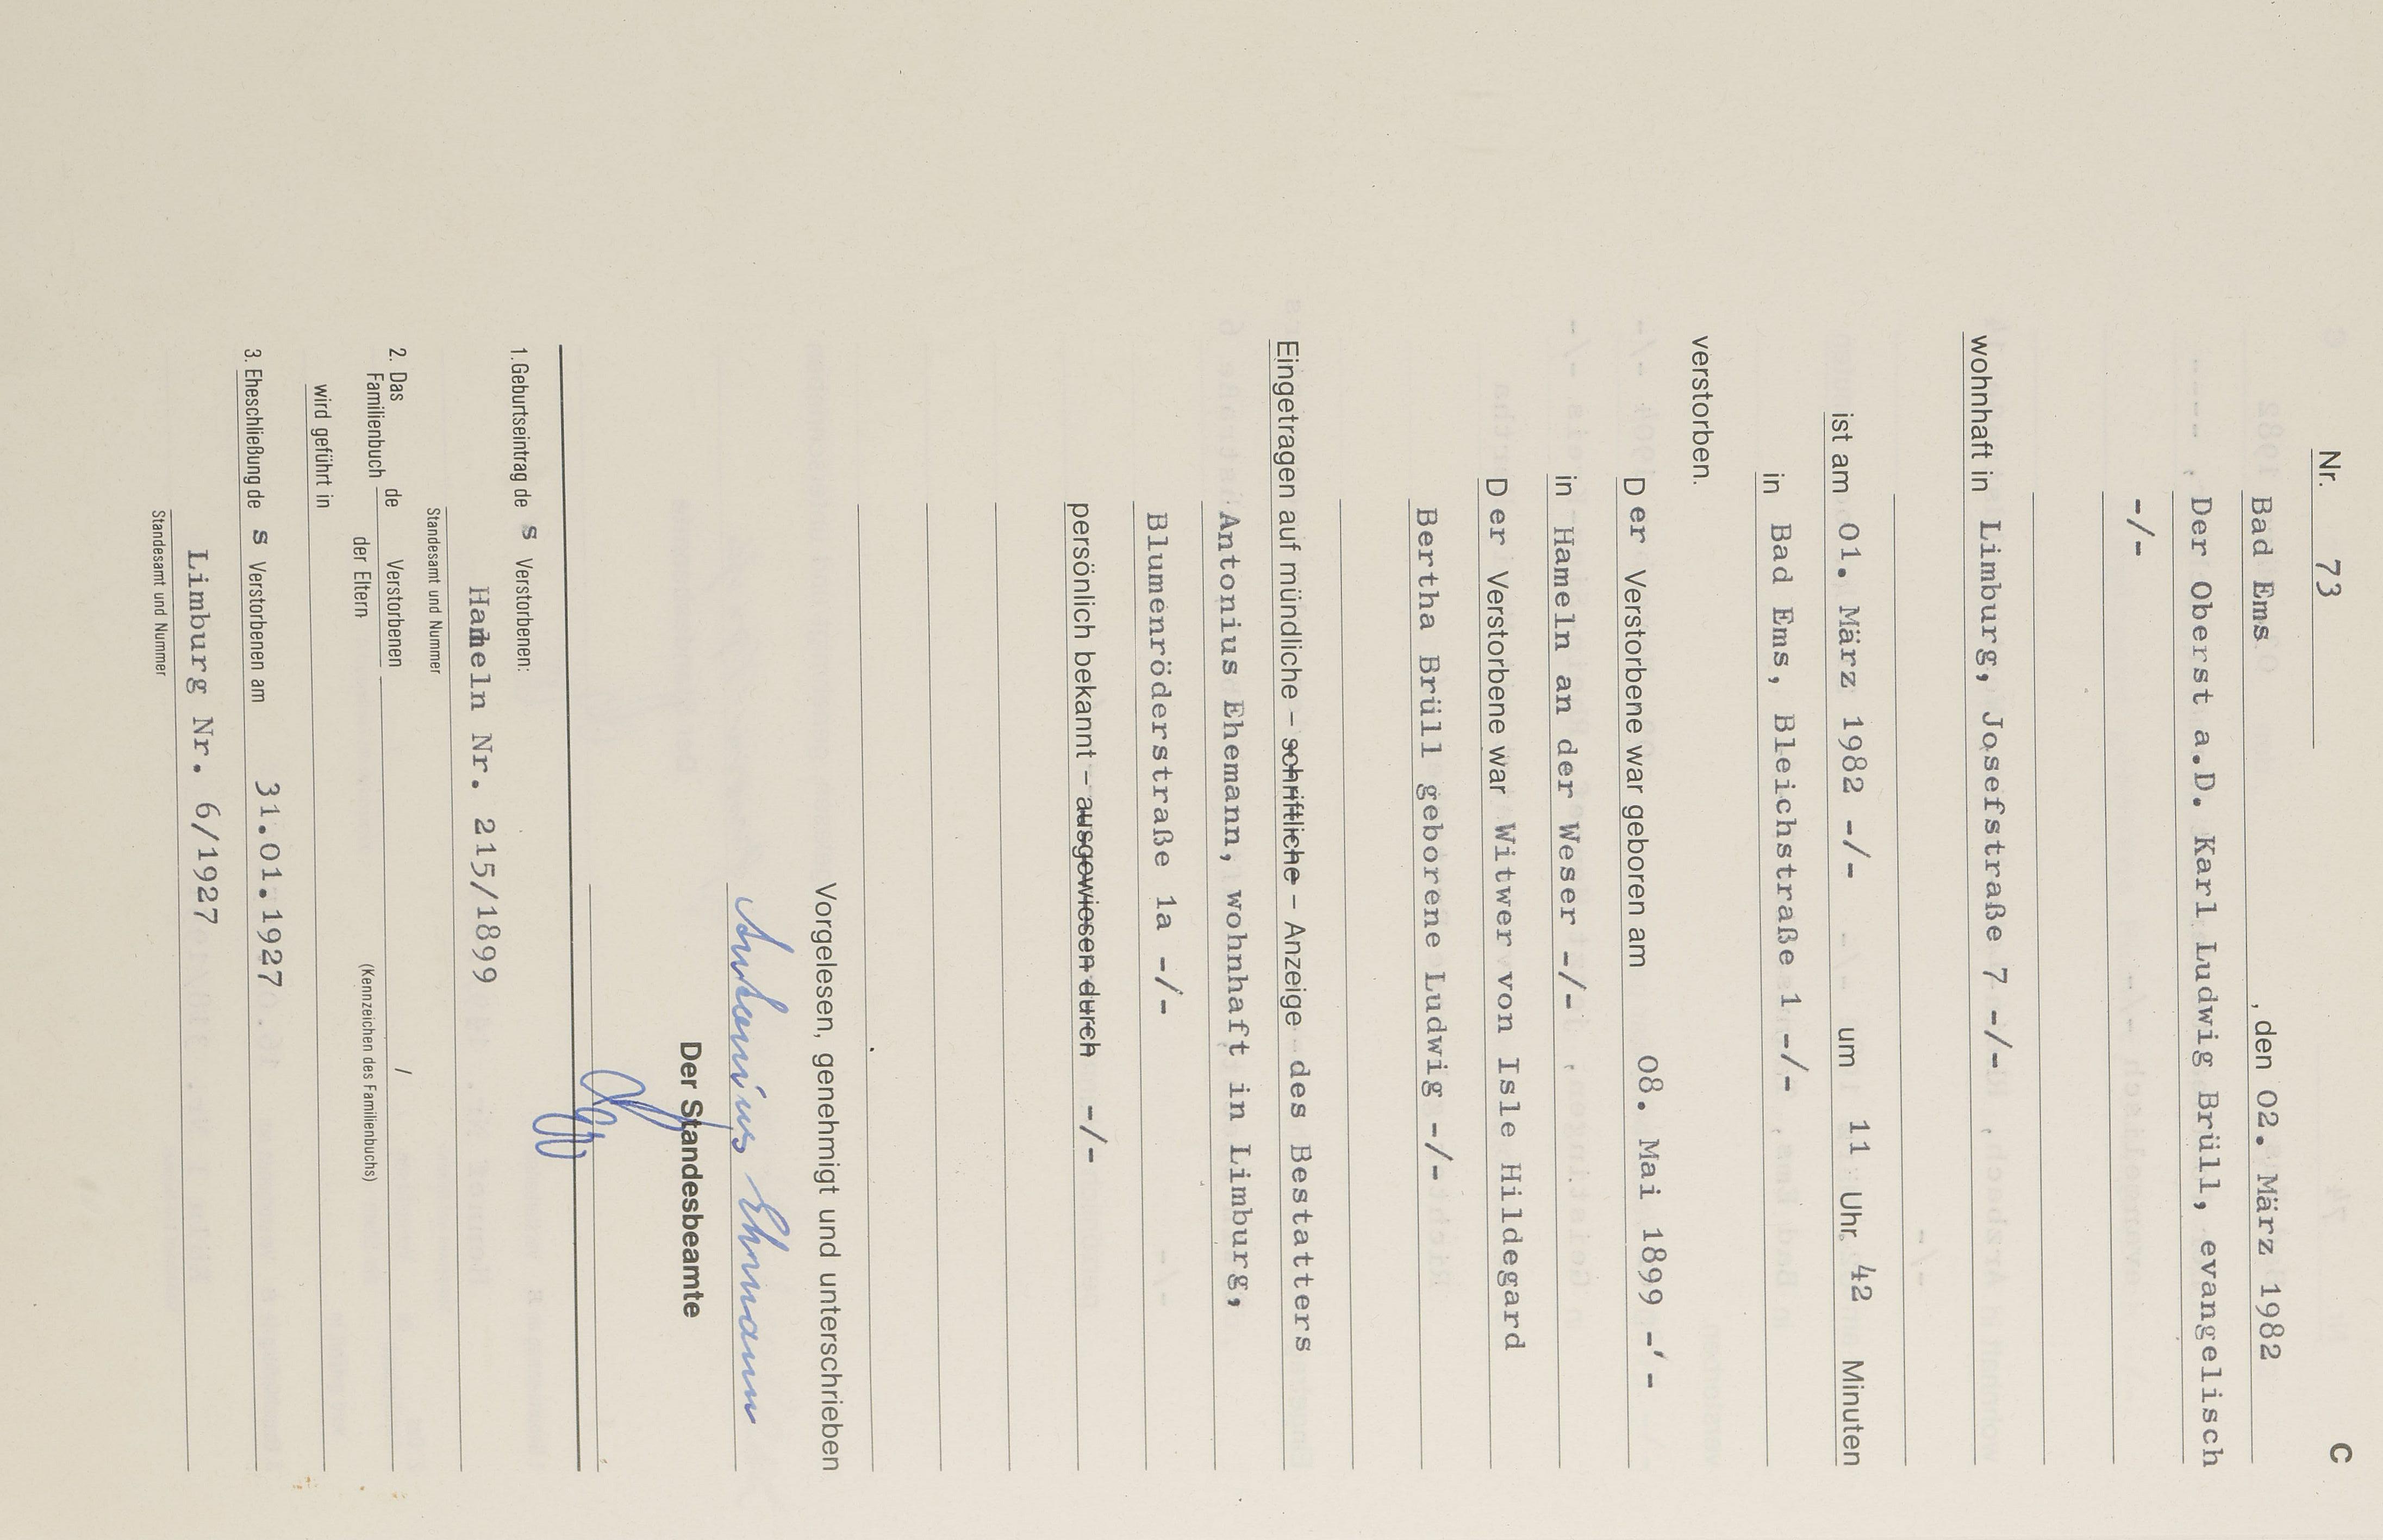 C
Nr. 73
Bad Ems, den 02. März 1982
Der Oberst a.D. Karl Ludwig Brüll, evangelisch
-/-
wohnhaft in Limburg, Josefstraße 7 -/-
ist am 01. März 1982 -/- um 11 Uhr 42 Minuten
in Bad Ems, Bleichstraße 1 -/-
verstorben.
D er Verstorbene war geboren am 08. Mai 1899 -/-
in Hameln an der Weser -/-
D er Verstorbene war Witwer von Isle Hildegard
Bertha Brüll geborene Ludwig -/-
Eingetragen auf mündliche – schriftliche – Anzeige des Bestatters
Antonius Ehemann, wohnhaft in Limburg,
Blumenröderstraße 1a -/-
persönlich bekannt – ausgewiesen durch -/-
Vorgelesen, genehmigt und unterschrieben
Antonius Ehmann
Der Standesbeamte
1.Geburtseintrag de s Verstorbenen:
Hameln Nr. 215/1899
Standesamt und Nummer
2. Das Familienbuch de Verstorbenen /
der Eltern (Kennzeichen des Familienbuchs)
wird geführt in
3. Eheschließung de s Verstorbenen am 31.01.1927
Limburg Nr. 6/1927
Standesamt und Nummer